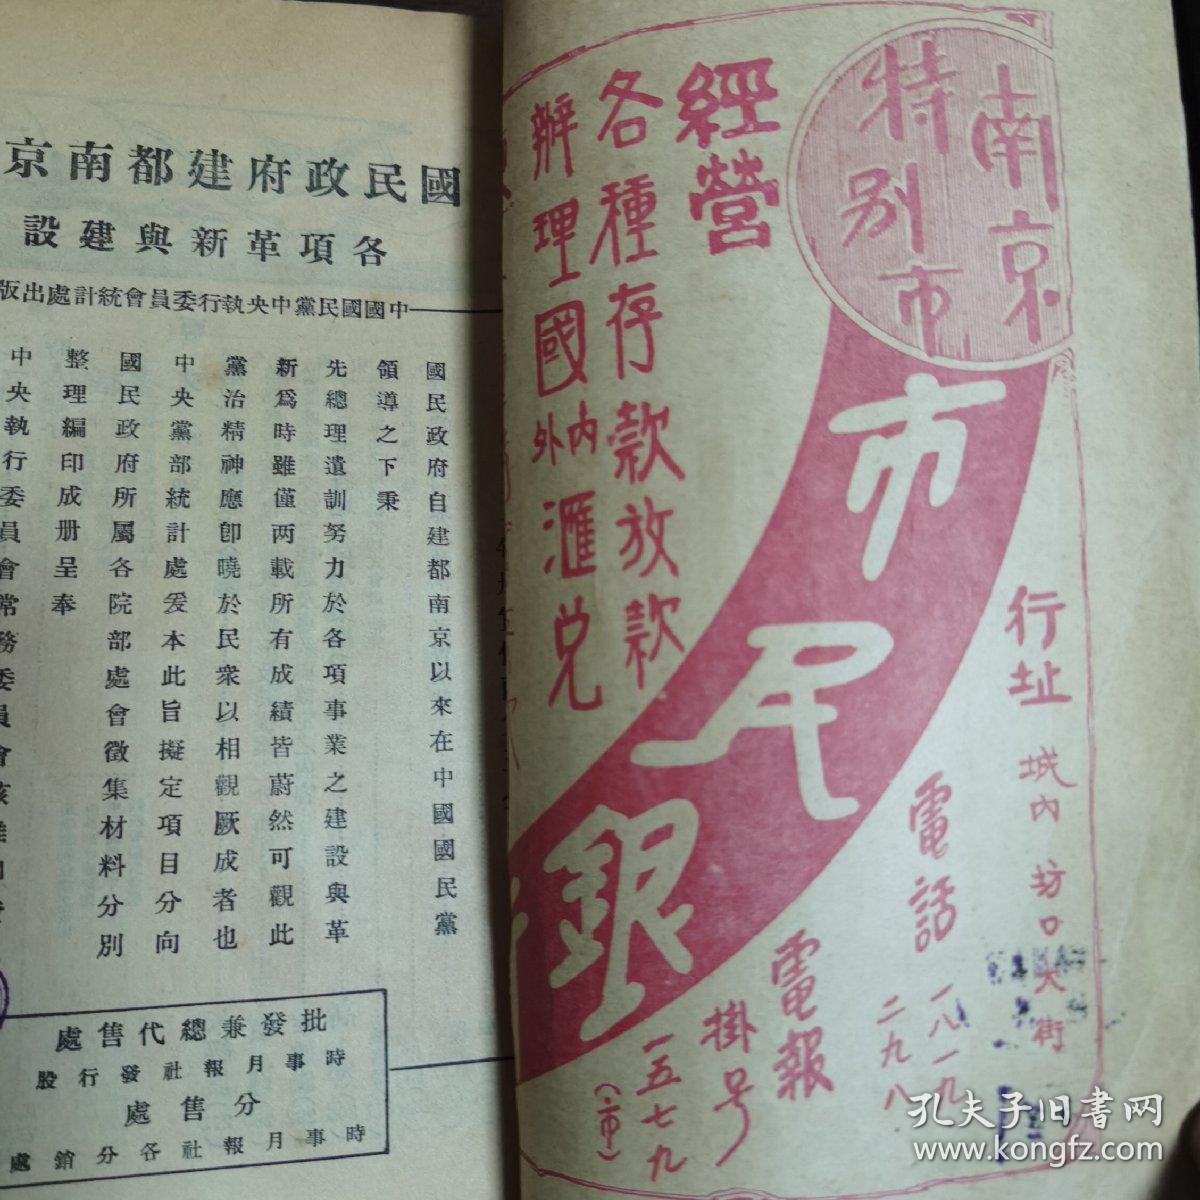 南京
特別市
市民銀
經營
各種存款放款
辦理國內外滙兌
行址 城內坊口大街
電話 一八一九
二九八
電報
掛号
一五七九
(市)
國民政府建都南京
各項革新與建設
中國國民黨中央執行委員會統計處出版
國民政府自建都南京以來在中國國民黨
領導之下秉
先總理遺訓努力於各項事業之建設與革
新爲時雖僅两載所有成績皆蔚然可觀此
黨治精神應卽曉於民衆以相觀厥成者也
中央黨部統計處爰本此旨擬定項目分向
國民政府所屬各院部處會徵集材料分別
整理編印成册呈奉
中央執行委員會常務委員會核准
批發兼總代售處
時事月報社發行股
分售處
時事月報社各分銷處
孔夫子旧書网
www.kongfz.com